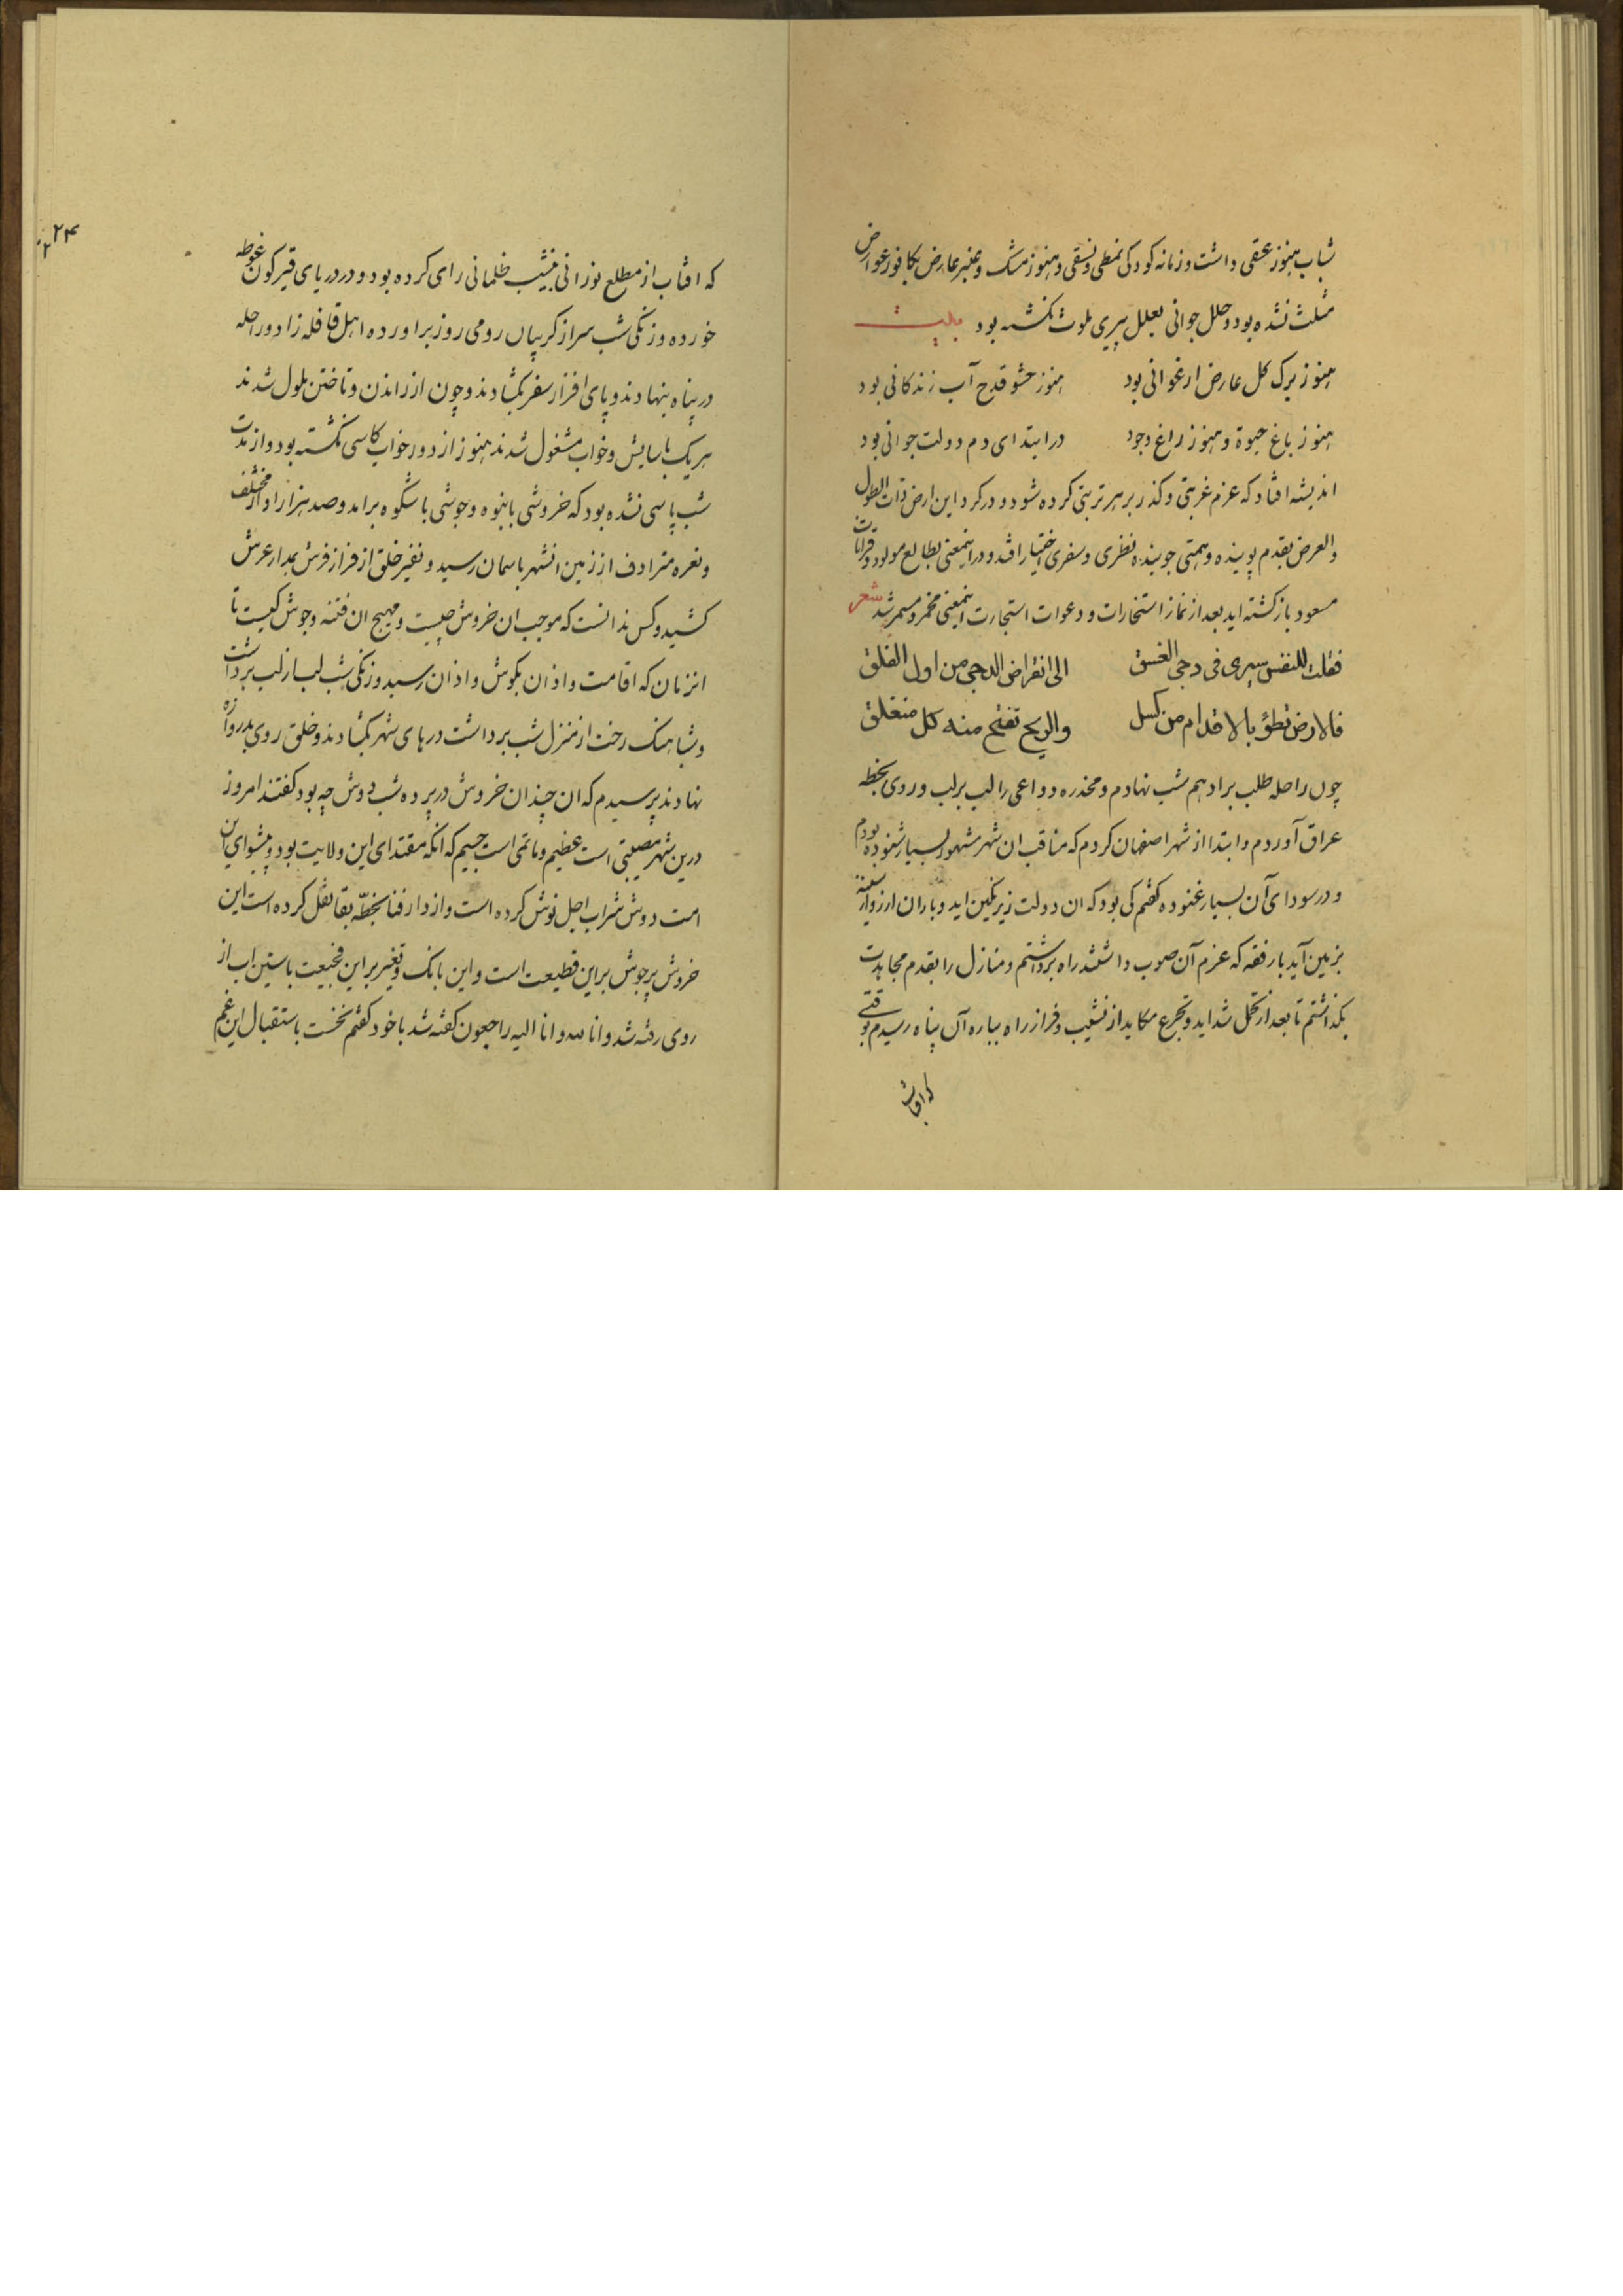 شباب هنوز عقی داشت و زمانه کودکی نمطی و نسقی و هنوز مشک و عنبر عارض بکافور عوارض
مثلث نشده بود و حلل جوانی بعلل پیری ملوث نکشته بود بیت
هنوز برک کل عارض ارغوانی بود هنوز حشو قدح آب زندکانی بود
هنوز باغ حیوة و هنوز راغ وجود در ابتدای دم دولت جوانی بود
اندیشه افتاد که عزم غربتی و کذر بر هر تربتی کرده شود و در کرد این ارض ذات الطول
والعرض بقدم پوینده و همتی جوینده نظری و سفری اختیار افتد و در اینمعنی بطالع مولود و قرانات
مسعود باز کشته اید بعد از نماز استخارات و دعوات استجارت اینمعنی مخمر و مسمر شد شعر
فقلت للنفس سیری فی دجی الغسق الی انقراض الدجی من اول الفلق
فالارض تطؤ بالاقدام من کسل والریح تفتح منه کل منغلق
چون راحله طلب بر ادهم شب نهادم و مخدره دواعی را لب بر لب و روی بخطه
عراق آوردم و ابتدا از شهر اصفهان کردم که مناقب ان شهر مشهور بسیار شنوده بودم
و در سودای آن بسیار غنوده کفتم کی بود که ان دولت زیر نکین اید و باران ارزو از سینه
بزمین آید با رفقه که عزم آن صوب داشتند راه برداشتم و منازل را بقدم مجاهدت
بکذاشتم تا بعد از تحمل شداید و تجرع مکاید از نشیب و فراز راه بباره آن پناه رسیدم بوقتی
که افتاب
۲۲۴
که افتاب از مطلع نورانی بنشیب ظلمانی رای کرده بود و در دریای قیرکون غوطه
خورده و زنکی شب سر از کریبان رومی روز براورده اهل قافله زاد و راحله
در پناه بنهادند و پای افزار سفر بکشادند و چون از راندن و تاختن ملول شدند
هر یک باسایش و خواب مشغول شدند هنوز از دور خواب کاسی نکشته بود و از مدت
شب پاسی نشده بود که خروشی بانبوه و جوشی با شکوه برامد و صد هزار اواز مختلف
و نعره مترادف از زمین انشهر باسمان رسید و نفیر خلق از فراز فرش بمدار عرش
کشید و کس ندانست که موجب ان خروش چیست و مهیج ان فتنه و جوش کیست تا
انزمان که اقامت و اذان بکوش و اذان رسید و زنکی شب لب از لب برداشت
و شباهنک رخت از منزل شب برداشت درهای شهر بکشادند و خلق روی بدروازه
نهادند پرسیدم که ان چندان خروش در پرده شب دوش چه بود کفتند امروز
درین شهر مصیبتی است عظیم و ماتمی است جسیم که انکه مقتدای این ولایت بود و پیشوای این
امت دوش شراب اجل نوش کرده است و از دار فنا بخطّه بقا نقل کرده است این
خروش پر جوش بر این قطیعت است و این بانک و نفیر بر این فجیعت باستین اب از
روی رفته شد و انا لله و انا الیه راجعون کفته شد با خود کفتم نخست باستقبال این غم